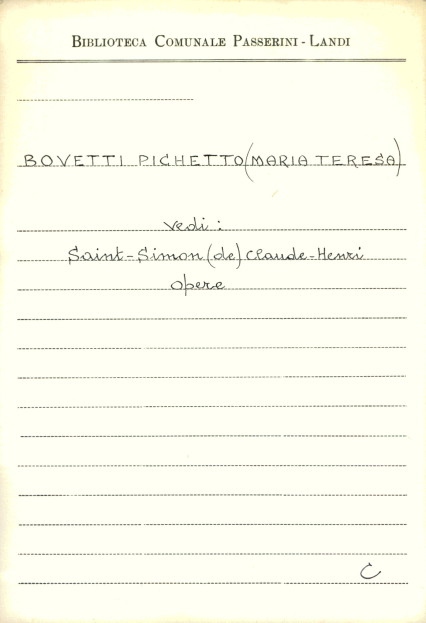 BIBLIOTECA COMUNALE PASSERINI - LANDI
BOVETTI PICHETTO (MARIA TERESA)
vedi :
Saint-Simon (de) Claude-Henri
opere
C